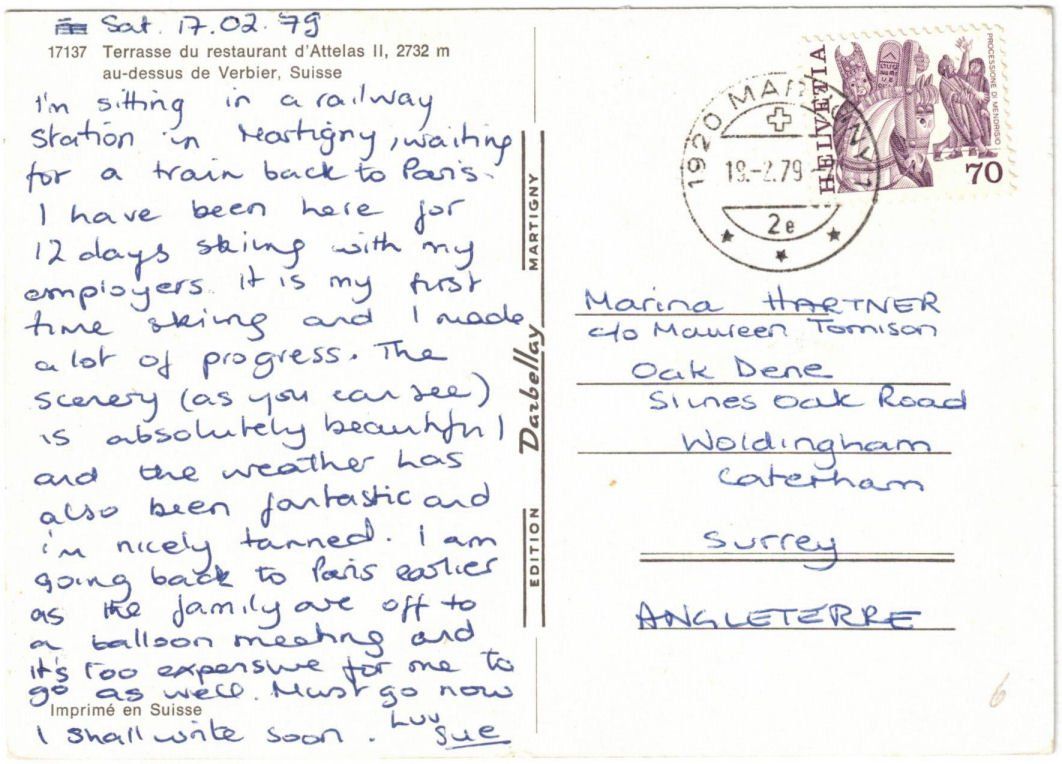 Sat. 17.02.79
17137 Terrasse du restaurant d'Attelas II, 2732 m
au-dessus de Verbier, Suisse
I'm sitting in a railway
station in Martigny, waiting
for a train back to Paris.
I have been here for
12 days skiing with my
employers. It is my first
time skiing and I made
a lot of progress. The
scenery (as you can see)
is absolutely beautiful
and the weather has
also been fantastic and
i'm nicely tanned. I am
going back to Paris earlier
as the family are off to
a balloon meeting and
it's too expensive for me to
go as well. Must go now
Imprimé en Suisse
I shall write soon. Luv
Sue
EDITION Darbellay MARTIGNY
1920 MARTIGNY 1
19.-2.79
2e
HELVETIA
PROCESSIONE DI MENDRISIO
70
Marina HARTNER
c/o Maureen Tomison
Oak Dene
Slines Oak Road
Woldingham
Caterham
Surrey
ANGLETERRE
6